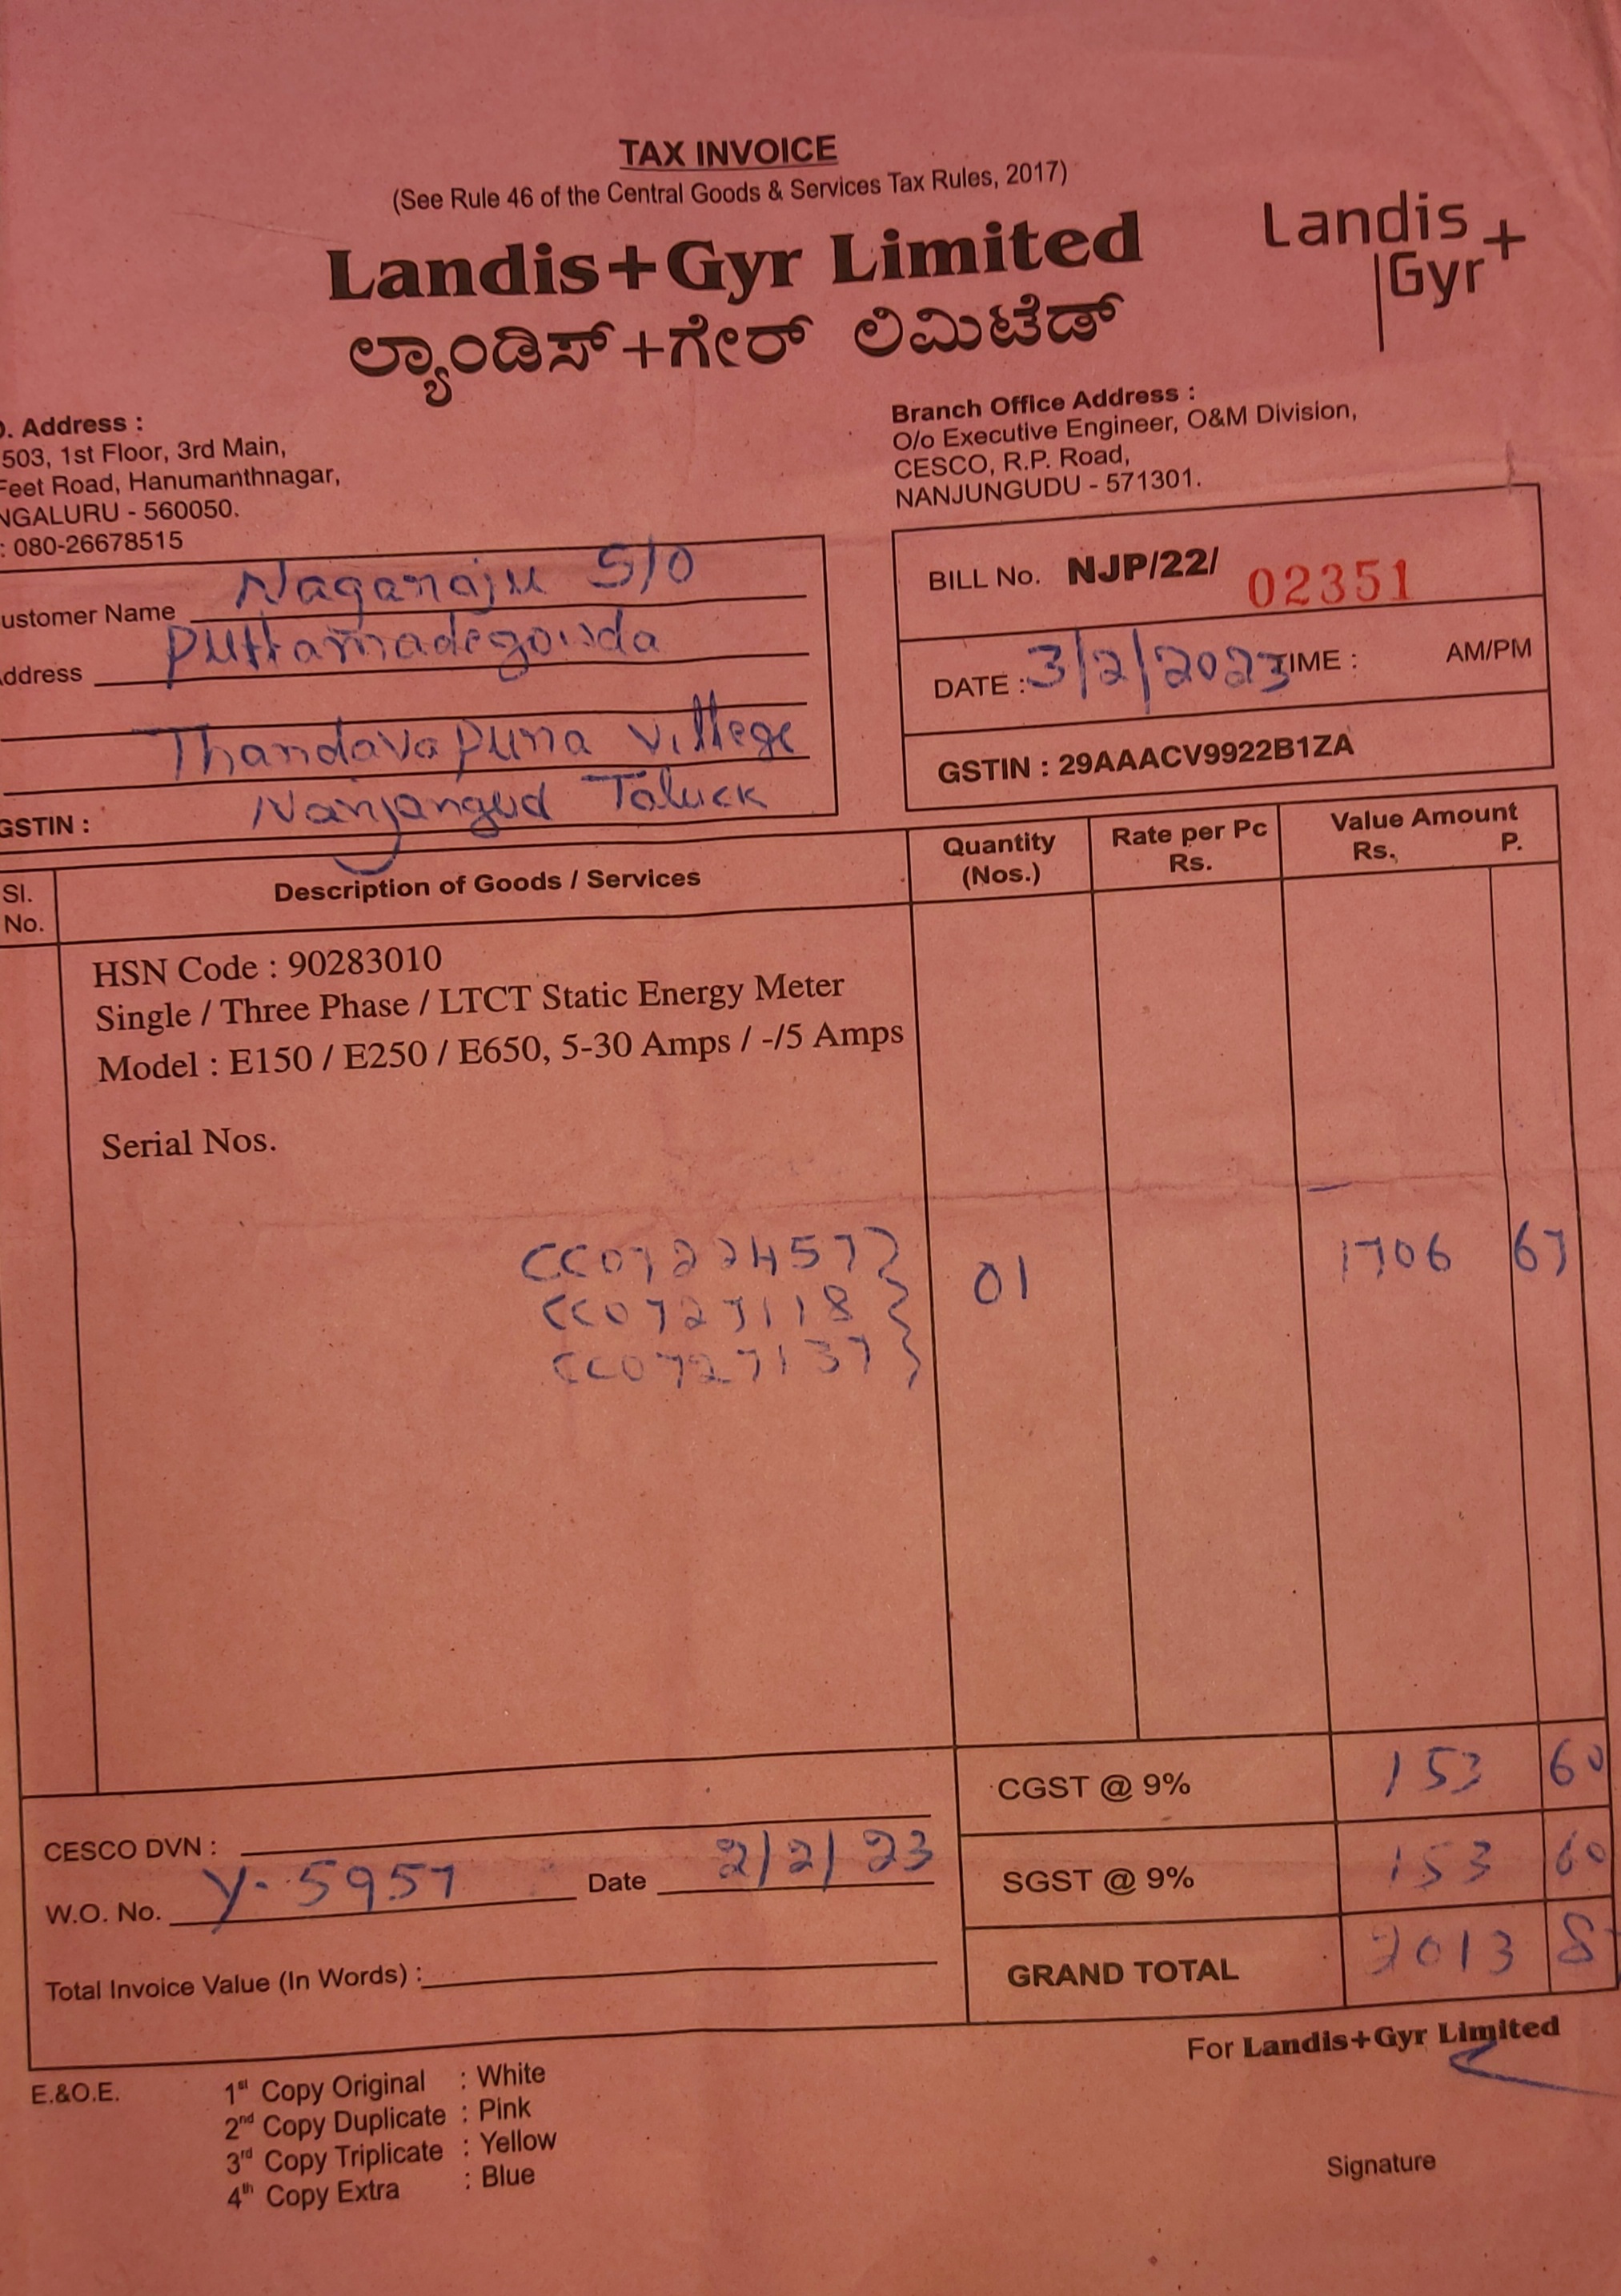 TAX INVOICE
(See Rule 46 of the Central Goods & Services Tax Rules, 2017)
Landis+Gyr Limited
ಲ್ಯಾಂಡಿಸ್+ಗೇರ್ ಲಿಮಿಟೆಡ್
Landis
Gyr+
. Address :
503, 1st Floor, 3rd Main,
Feet Road, Hanumanthnagar,
NGALURU - 560050.
: 080-26678515
Branch Office Address :
O/o Executive Engineer, O&M Division,
CESCO, R.P. Road,
NANJUNGUDU - 571301.
ustomer Name Nagaraju S/O
ddress Puttamadegowda
Thandavapura Villege
Nanjangud Taluck
GSTIN :
BILL No. NJP/22/ 02351
DATE : 3/2/2023 TIME : AM/PM
GSTIN : 29AAACV9922B1ZA
Sl. No. Description of Goods / Services Quantity (Nos.) Rate per Pc Rs. Value Amount Rs. P.
HSN Code : 90283010
Single / Three Phase / LTCT Static Energy Meter
Model : E150 / E250 / E650, 5-30 Amps / -/5 Amps
Serial Nos.
CC0722457 } 01 1706 67
CC0727118
CC0727137
CGST @ 9% 153 60
SGST @ 9% 153 60
GRAND TOTAL 2013 8
CESCO DVN :
W.O. No. Y-5957 Date 2/2/23
Total Invoice Value (In Words) :
For Landis+Gyr Limited
E.&O.E.
1st Copy Original : White
2nd Copy Duplicate : Pink
3rd Copy Triplicate : Yellow
4th Copy Extra : Blue
Signature